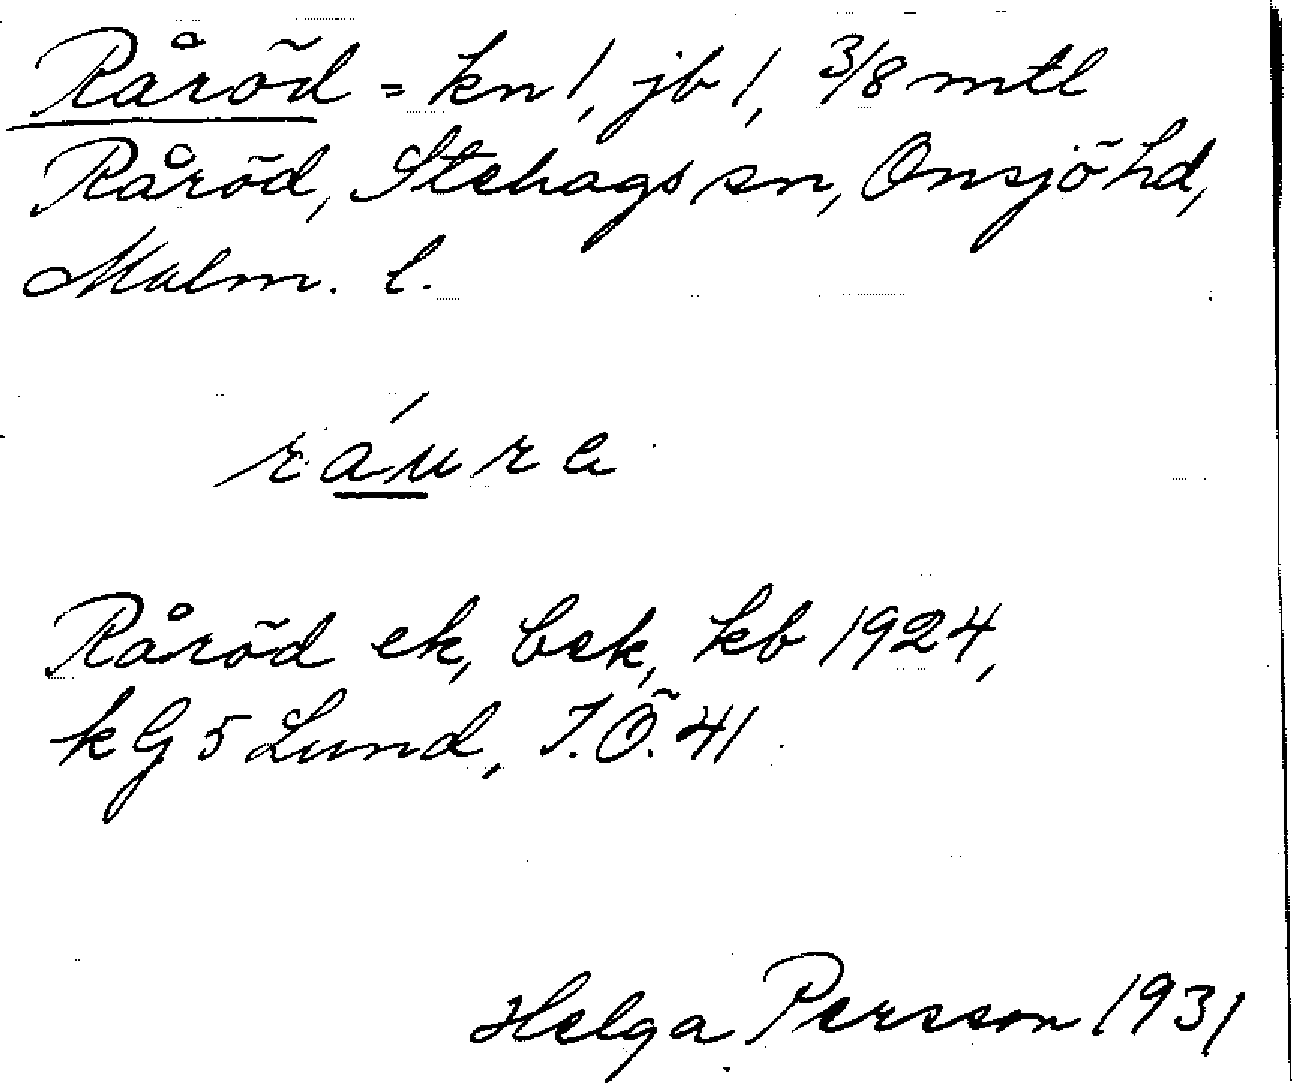 Råröd = kn 1, jb 1, 3/8 mtl
Råröd, Stehags sn, Onsjö hd,
Malm. l.
ráura
Råröd ek, bek, kb 1924,
kG5 Lund, J.Ö. 41
Helga Persson 1931